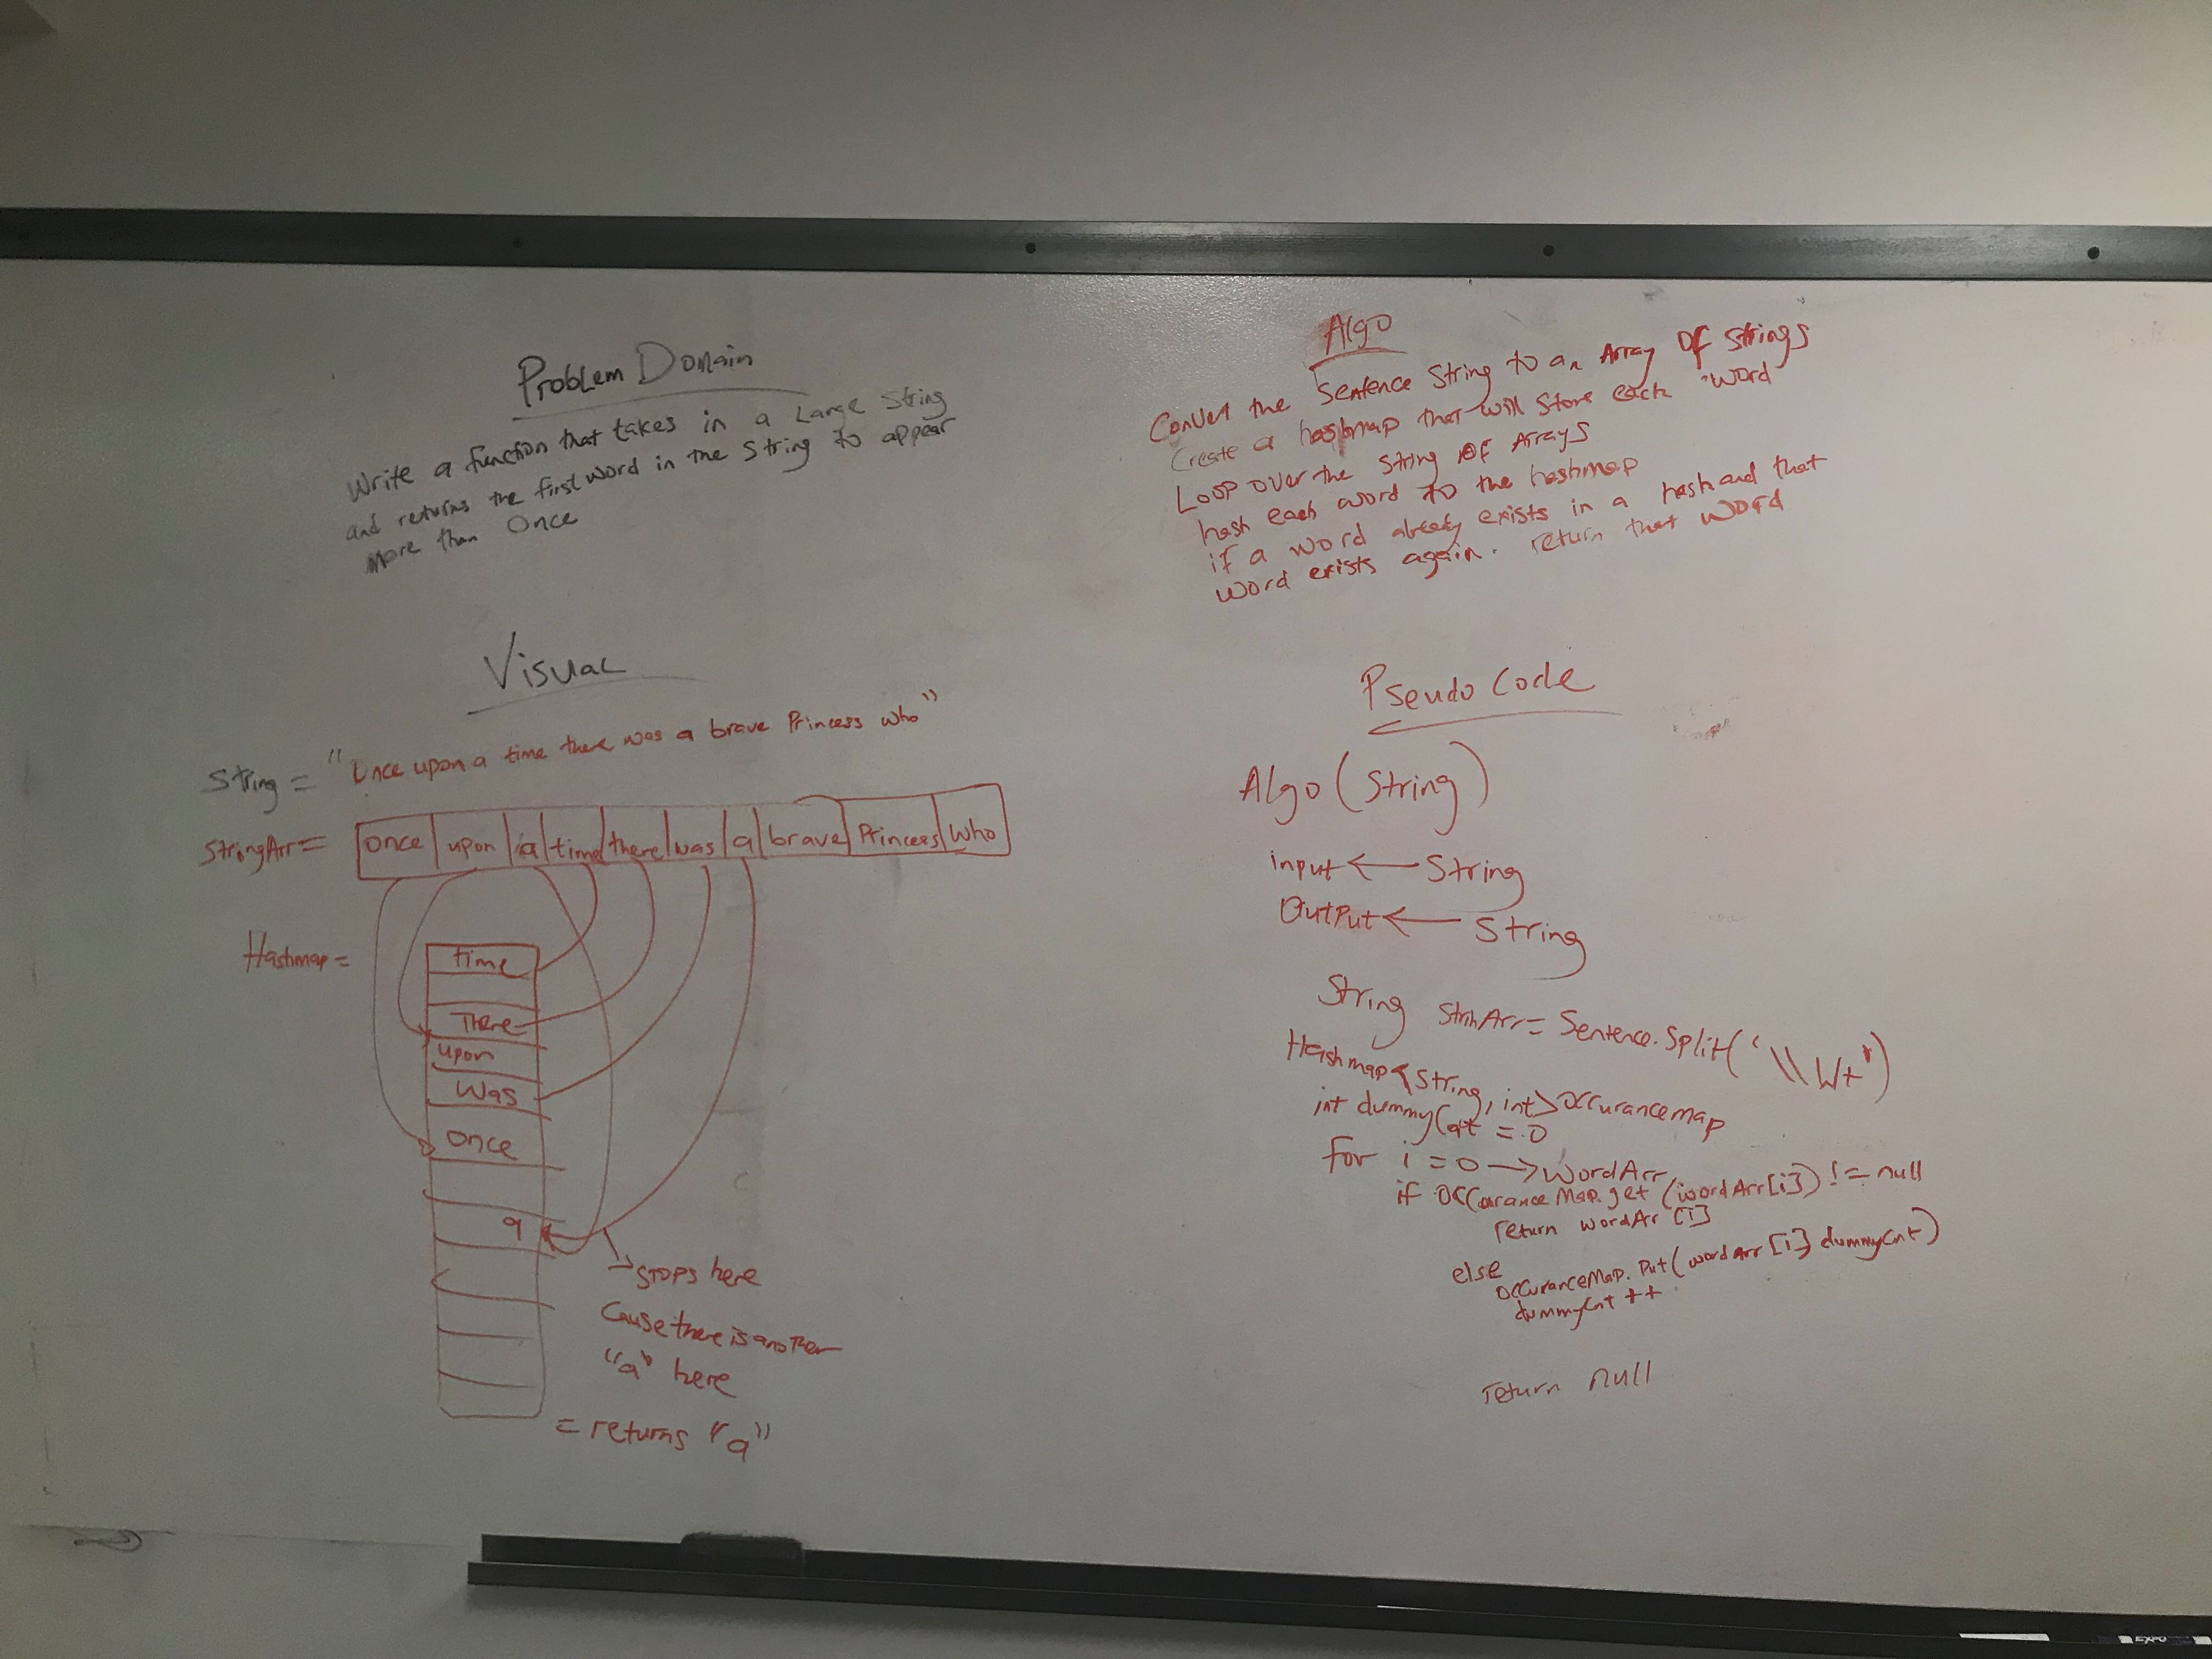 Problem Domain
Write a function that takes in a Large String
and returns the first word in the String to appear
more than Once
Visual
String = "Once upon a time there was a brave Princess who"
StringArr = Once upon a time there was a brave Princess Who
Hashmap =
time
There
upon
Was
Once
a
STOPS here
Cause there is another
"a" here
= returns "a"
Algo
Convert the Sentence String to an Array Of Strings
Create a hashmap that will store each word
Loop over the String Of Arrays
hash each word to the hashmap
if a word already exists in a hash and that
word exists again. return that word
Pseudo Code
Algo (String)
input ← String
OutPut ← String
String StrinArr = Sentence.Split('\\W+')
Hashmap<String, int> Occurancemap
int dummyCnt = 0
For i = 0 → WordArr
if OccuranceMap.get (wordArr[i]) != null
return wordArr [i]
else
OccuranceMap.Put(wordArr [i] dummyCnt)
dummyCnt ++
return null
EXPO